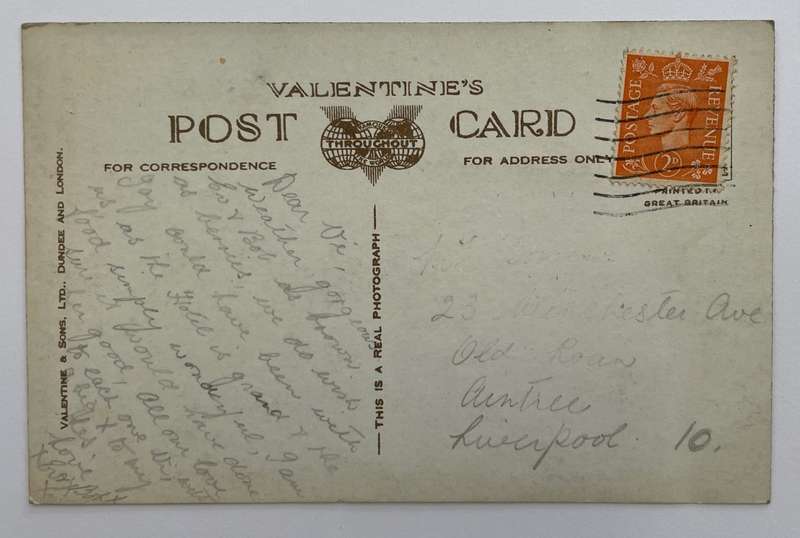 VALENTINE'S
POST CARD
THROUGHOUT
FOR CORRESPONDENCE
FOR ADDRESS ONLY
POSTAGE REVENUE
2D
PRINTED IN
GREAT BRITAIN
VALENTINE & SONS, LTD., DUNDEE AND LONDON.
THIS IS A REAL PHOTOGRAPH
Dear Vi,
weather gorgeous
& Bob as brown
as berries, we do wish
Joy could have been with
us as the Hotel is grand & the
food simply wonderful, I am
sure it would have done
her good, all our love
to each one
big x to my
love
23 Winchester Ave
Old Roan
Aintree
Liverpool 10.